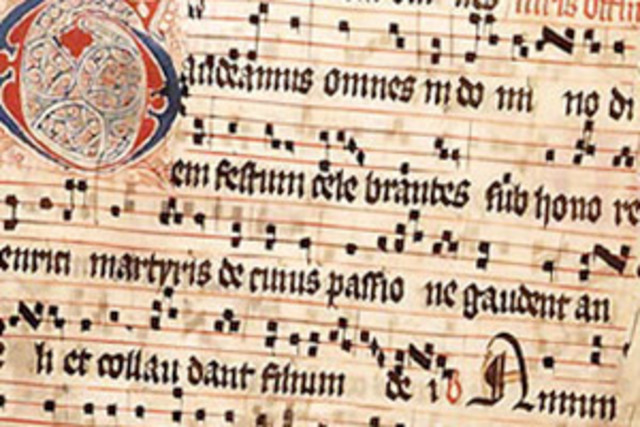 audeamus omnes in do mi no di
em festum cele brantes sub hono re
enrici martyris de cuius passio ne gaudent an
li et collau dant filium de i Annun